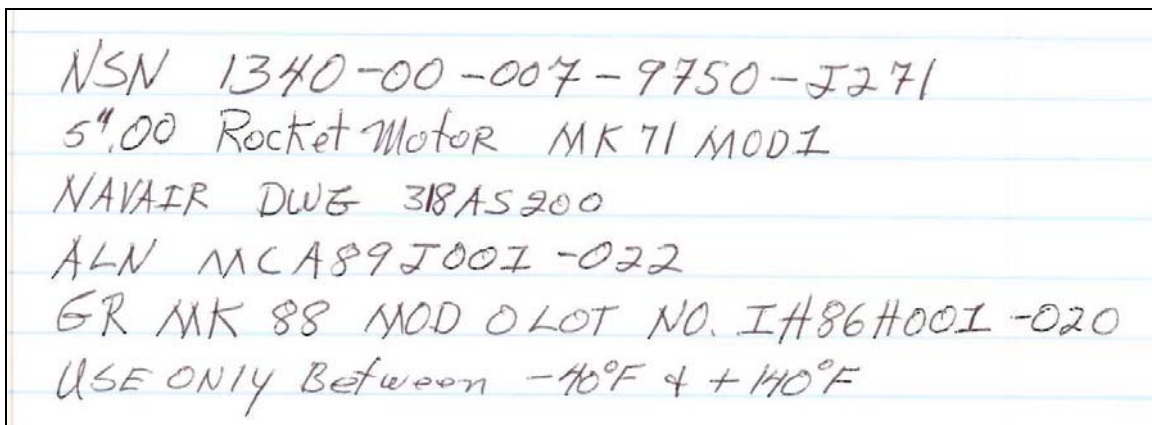 NSN 1340-00-007-9750-J271
5".00 Rocket Motor MK 71 MOD1
NAVAIR DWG 318AS200
ALN MCA89J001-022
GR MK 88 MOD 0 LOT NO. IH86H001-020
USE ONly Between -40°F & +140°F